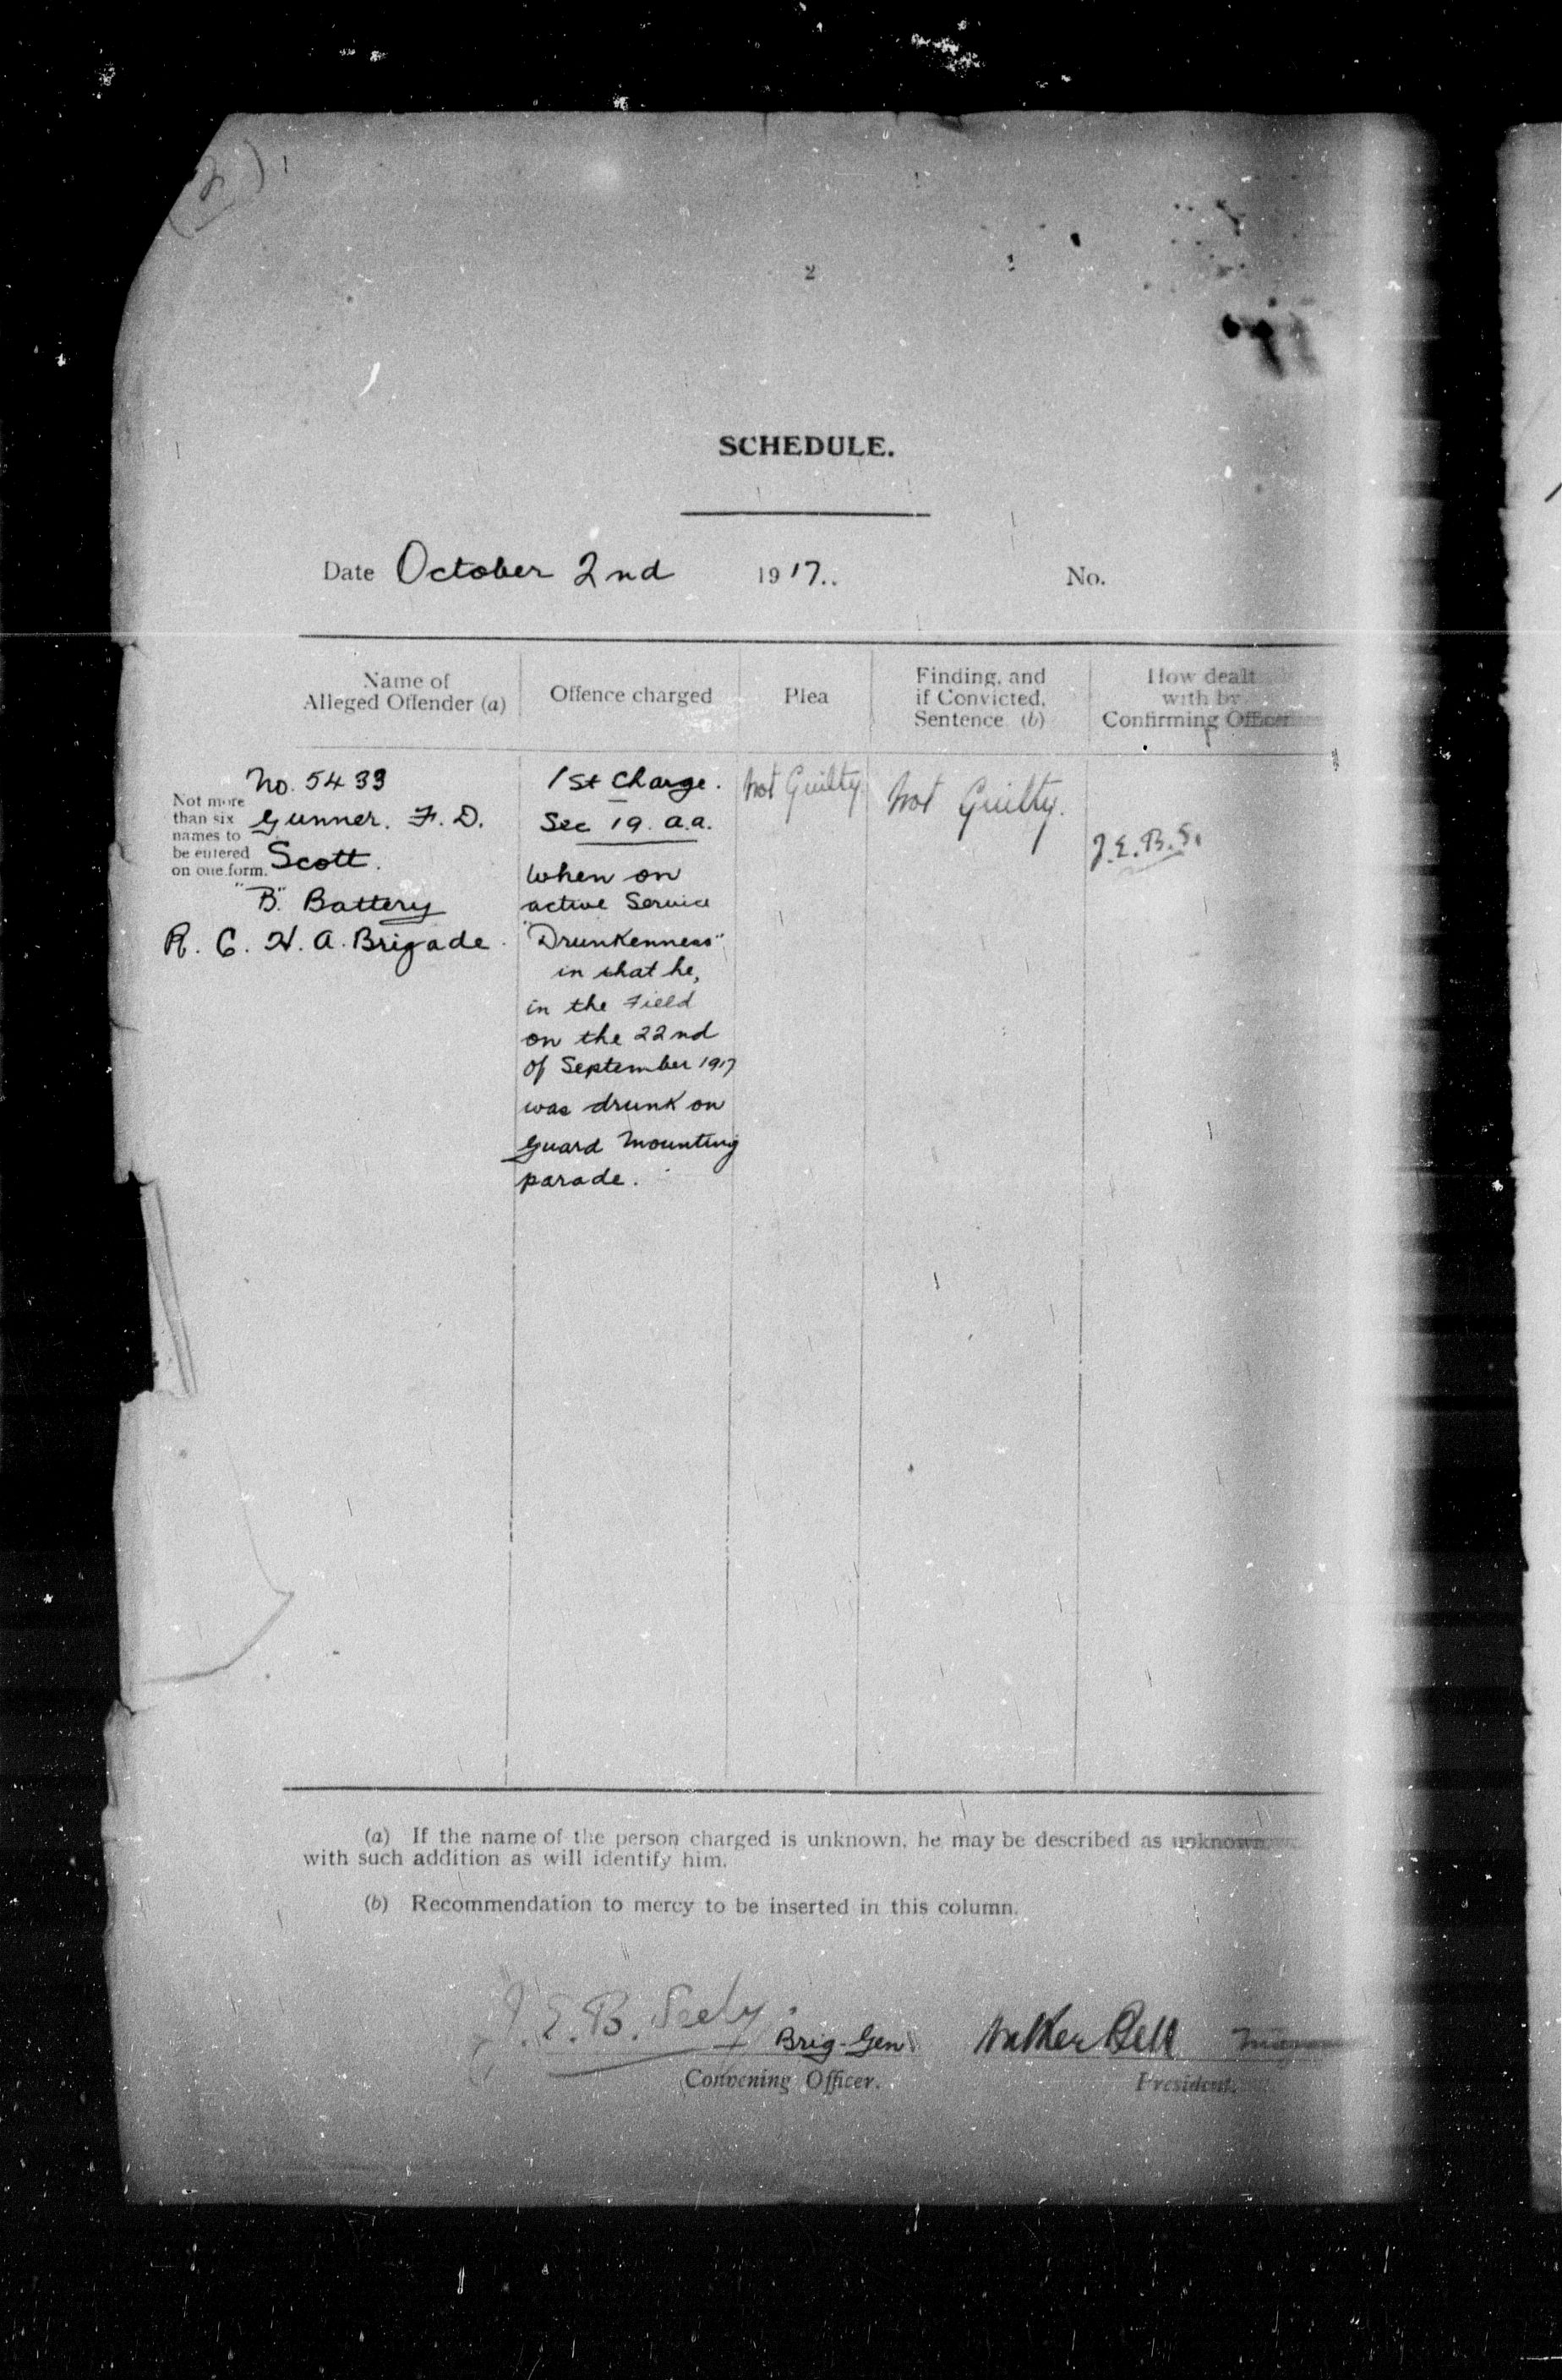 (2)
2
SCHEDULE.
Date October 2nd 1917.. No.
Name of
Alleged Offender (a)
Offence charged
Plea
Finding, and
if Convicted,
Sentence (b)
How dealt
with by
Confirming Officer
Not more
than six
names to
be entered
on one form.
No. 5433
Gunner. F. D.
Scott.
"B" Battery
R. C. H. A. Brigade.
1st Charge.
Sec 19. a.a.
When on
active Service
"Drunkenness"
in that he,
in the Field
on the 22nd
of September 1917
was drunk on
Guard Mounting
parade.
Not Guilty
Not Guilty.
J.E.B.S.
(a) If the name of the person charged is unknown, he may be described as unknown,
with such addition as will identify him.
(b) Recommendation to mercy to be inserted in this column.
J.E.B. Seely Brig-Gen
Convening Officer.
Walker Bell
President.